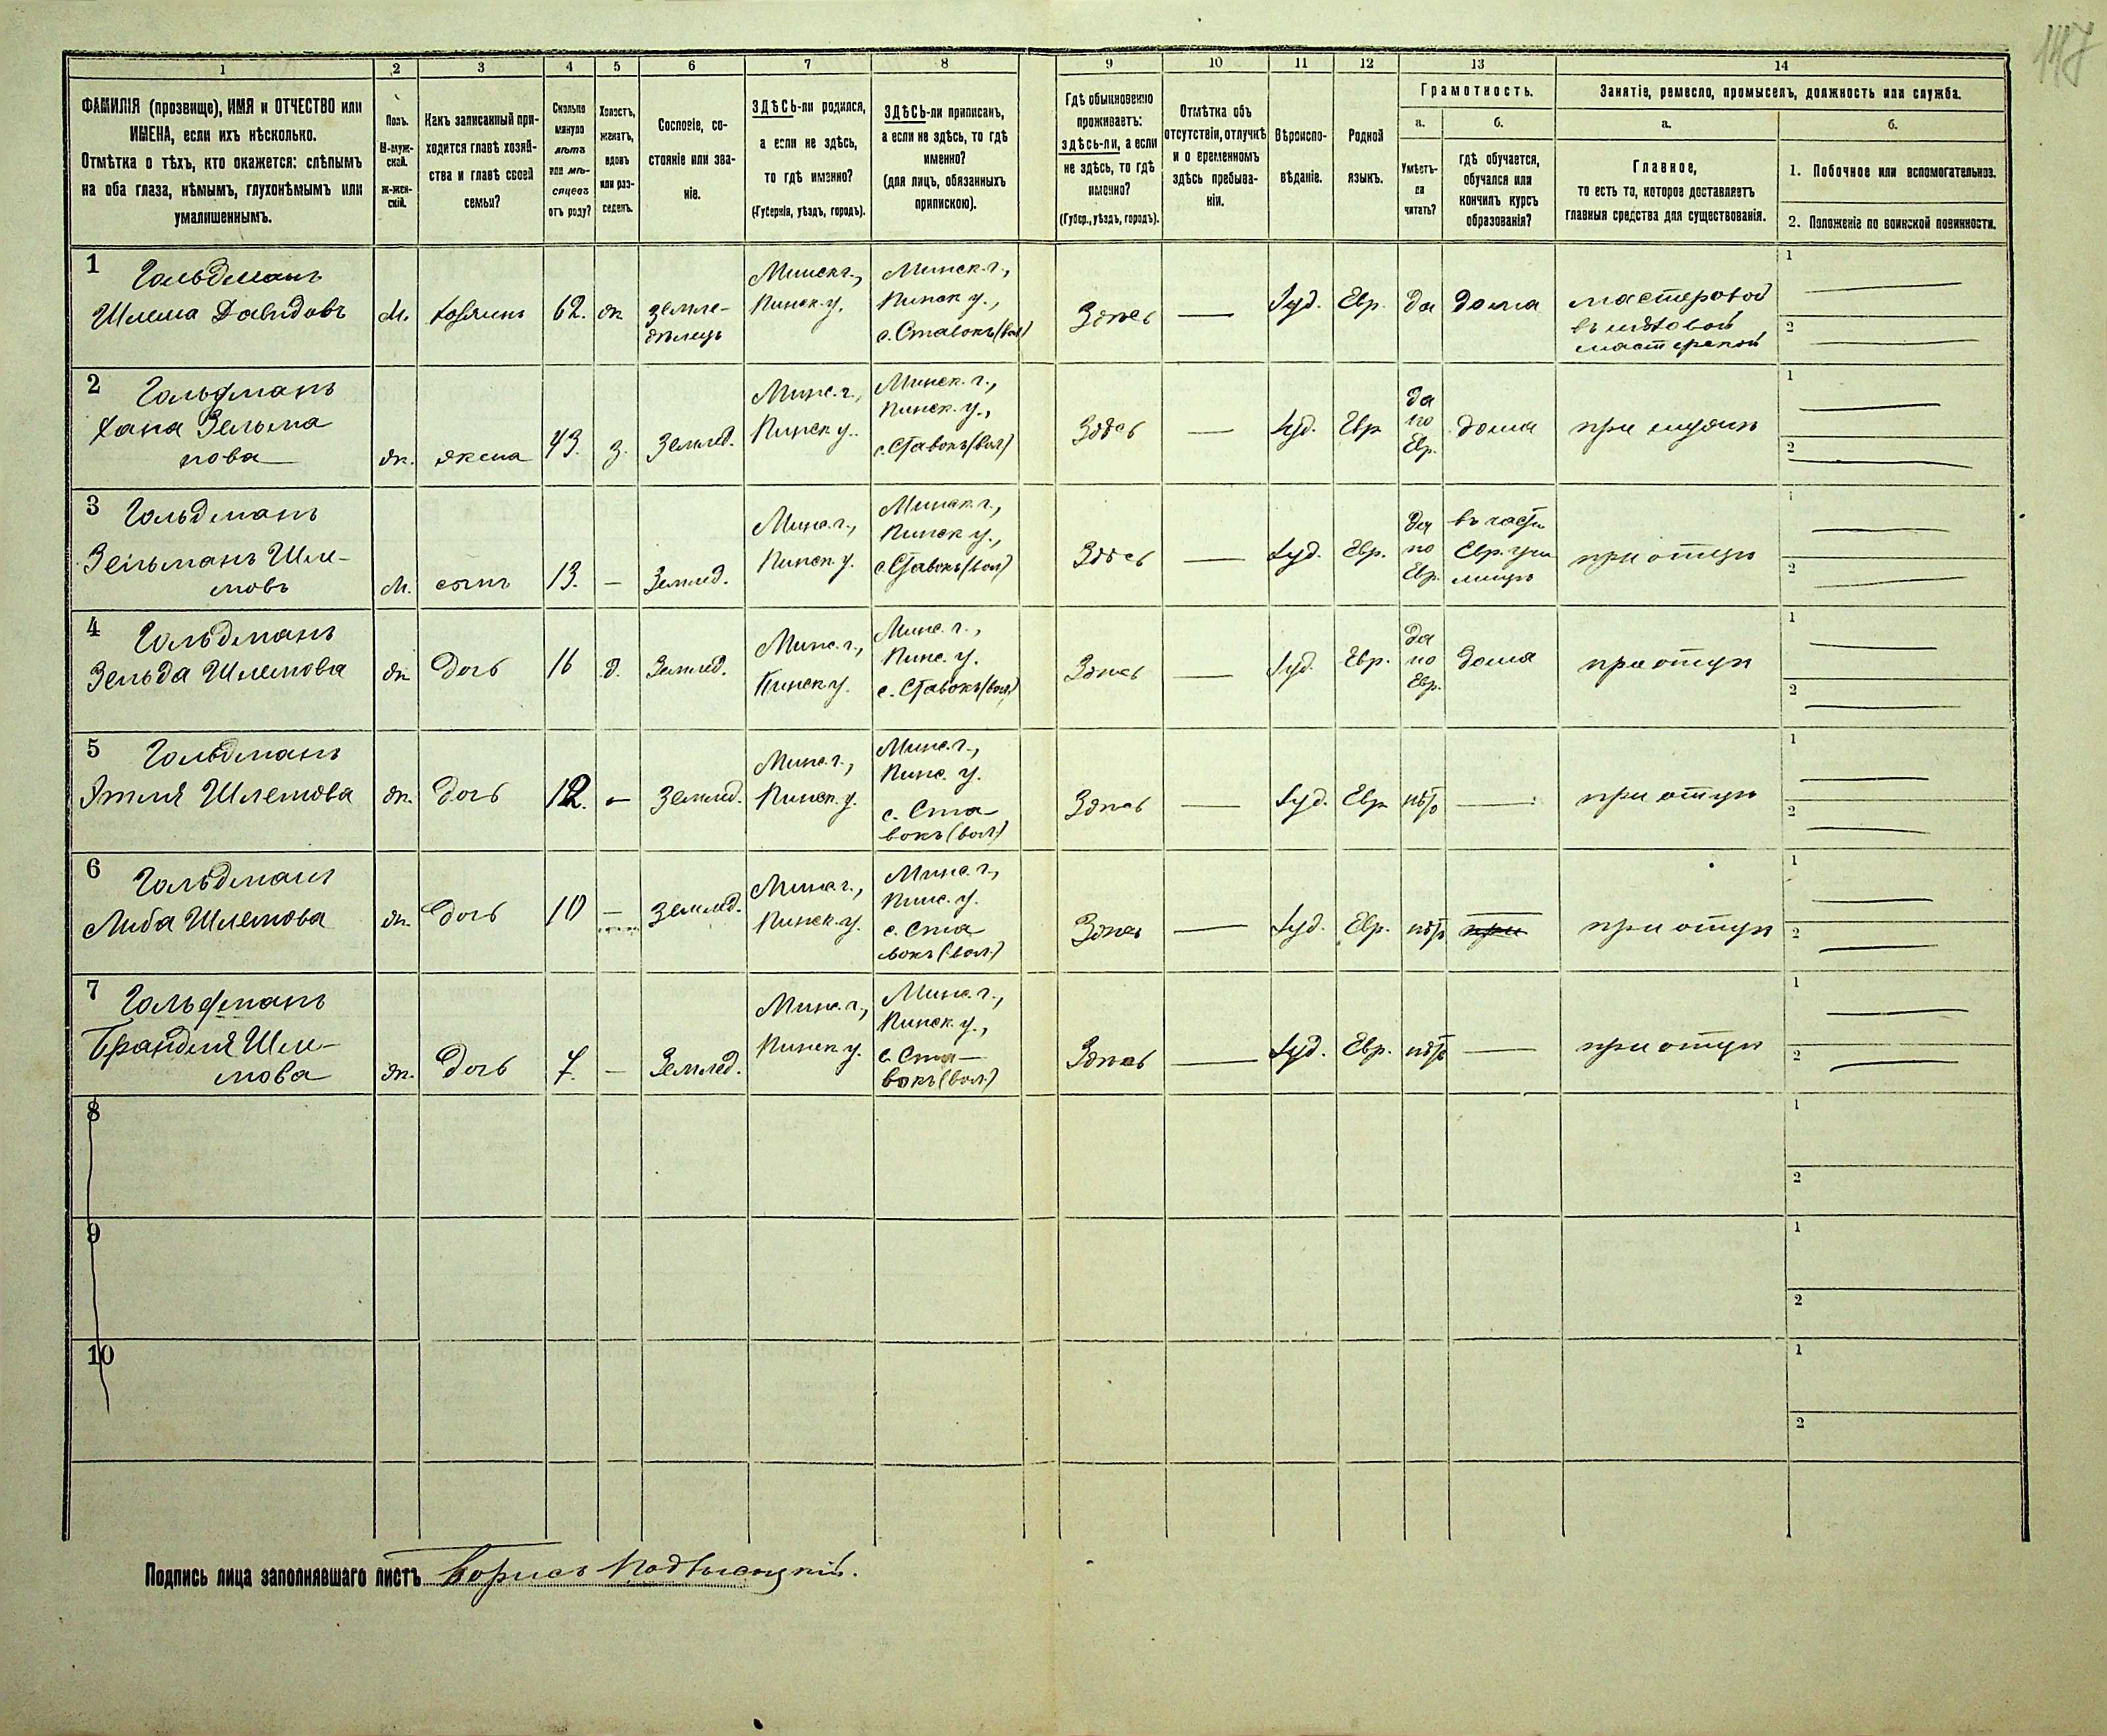 147
1 2 3 4 5 6 7 8 9 10 11 12 13 14
ФАМИЛІЯ (прозвище), ИМЯ и ОТЧЕСТВО или
ИМЕНА, если ихъ нѣсколько.
Отмѣтка о тѣхъ, кто окажется: слѣпымъ
на оба глаза, нѣмымъ, глухонѣмымъ или
умалишеннымъ.
Полъ.
М-муж-
ской.
Ж-жен-
скій.
Какъ записанный при-
ходится главѣ хозяй-
ства и главѣ своей
семьи?
Сколько
минуло
лѣтъ
или мѣ-
сяцевъ
отъ роду?
Холостъ,
женатъ,
вдовъ
или раз-
веденъ.
Сословіе, со-
стояніе или зва-
ніе.
ЗДѢСЬ-ли родился,
а если не здѣсь,
то гдѣ именно?
(Губернія, уѣздъ, городъ).
ЗДѢСЬ-ли приписанъ,
а если не здѣсь, то гдѣ
именно?
(для лицъ, обязанныхъ
припискою).
Гдѣ обыкновенно
проживаетъ:
здѣсь-ли, а если
не здѣсь, то гдѣ
именно?
(Губер., уѣздъ, городъ).
Отмѣтка объ
отсутствіи, отлучкѣ
и о временномъ
здѣсь пребыва-
ніи.
Вѣроиспо-
вѣданіе.
Родной
языкъ.
Грамотность.
а.
Умѣетъ-
ли
читать?
б.
гдѣ обучается,
обучался или
кончилъ курсъ
образованія?
Занятіе, ремесло, промыселъ, должность или служба.
а.
Главное,
то есть то, которое доставляетъ
главныя средства для существованія.
б.
1. Побочное или вспомогательное.
2. Положеніе по воинской повинности.
1 Гольдманъ
Шлема Давидовъ
М.
хозяинъ
62.
ж
земле-
дѣлецъ
Минск г.,
Пинск. у.
Минск. г.,
Пинск у.,
с. Ставокъ (вол)
Здѣсь
Іуд.
Евр.
да
дома
мастеровой
въ
мастерской
1
2
2 Гольдманъ
Хана Зельма
нова
ж.
жена
43.
з.
Землед.
Минс. г.,
Пинск у.
Минск. г.,
Пинск. у.,
с. Ставокъ (вол)
Здѣсь
Іуд.
Евр
да
по
Евр.
дома
при мужѣ
1
2
3 Гольдманъ
Зельманъ Шле-
мовъ
М.
сынъ
13.
Землед.
Минс. г.,
Пинск. у.
Минск г.,
Пинск у.,
с Ставокъ (вол)
Здѣсь
Іуд.
Евр.
да
по
Евр.
въ част.
Евр. учи
лищѣ
при отцѣ
1
2
4 Гольдманъ
Зельда Шлемова
ж
дочь
16
д.
Землед.
Минс. г.,
Пинск у.
Минс. г.,
Пинс. у.
с. Ставокъ (вол)
Здѣсь
Іуд.
Евр.
да
по
Евр.
дома
при отцѣ
1
2
5 Гольдманъ
Этля Шлемова
ж.
дочь
12.
Землед.
Минс. г.,
Пинск. у.
Минс. г.,
Пинс. у.
с. Ста
вокъ (вол)
Здѣсь
Іуд.
Евр
нѣтъ
при отцѣ
1
2
6 Гольдманъ
Либа Шлемова
ж.
дочь
10
Землед.
Минс г.,
Пинск. у.
Минс. г.,
Пинс. у.
с. Ста
вокъ (вол.)
Здѣсь
Іуд.
Евр.
нѣтъ
при
при отцѣ
1
2
7 Гольдманъ
Брандля Шле-
мова
ж.
дочь
7.
Землед.
Минс. г.,
Пинск у.
Минс. г.,
Пинск у.,
с. Ста-
вокъ (вол.)
Здѣсь
Іуд.
Евр.
нѣтъ
при отцѣ
1
2
8
1
2
9
1
2
10
1
2
Подпись лица заполнявшаго листъ Борисъ Подвысоцкій.